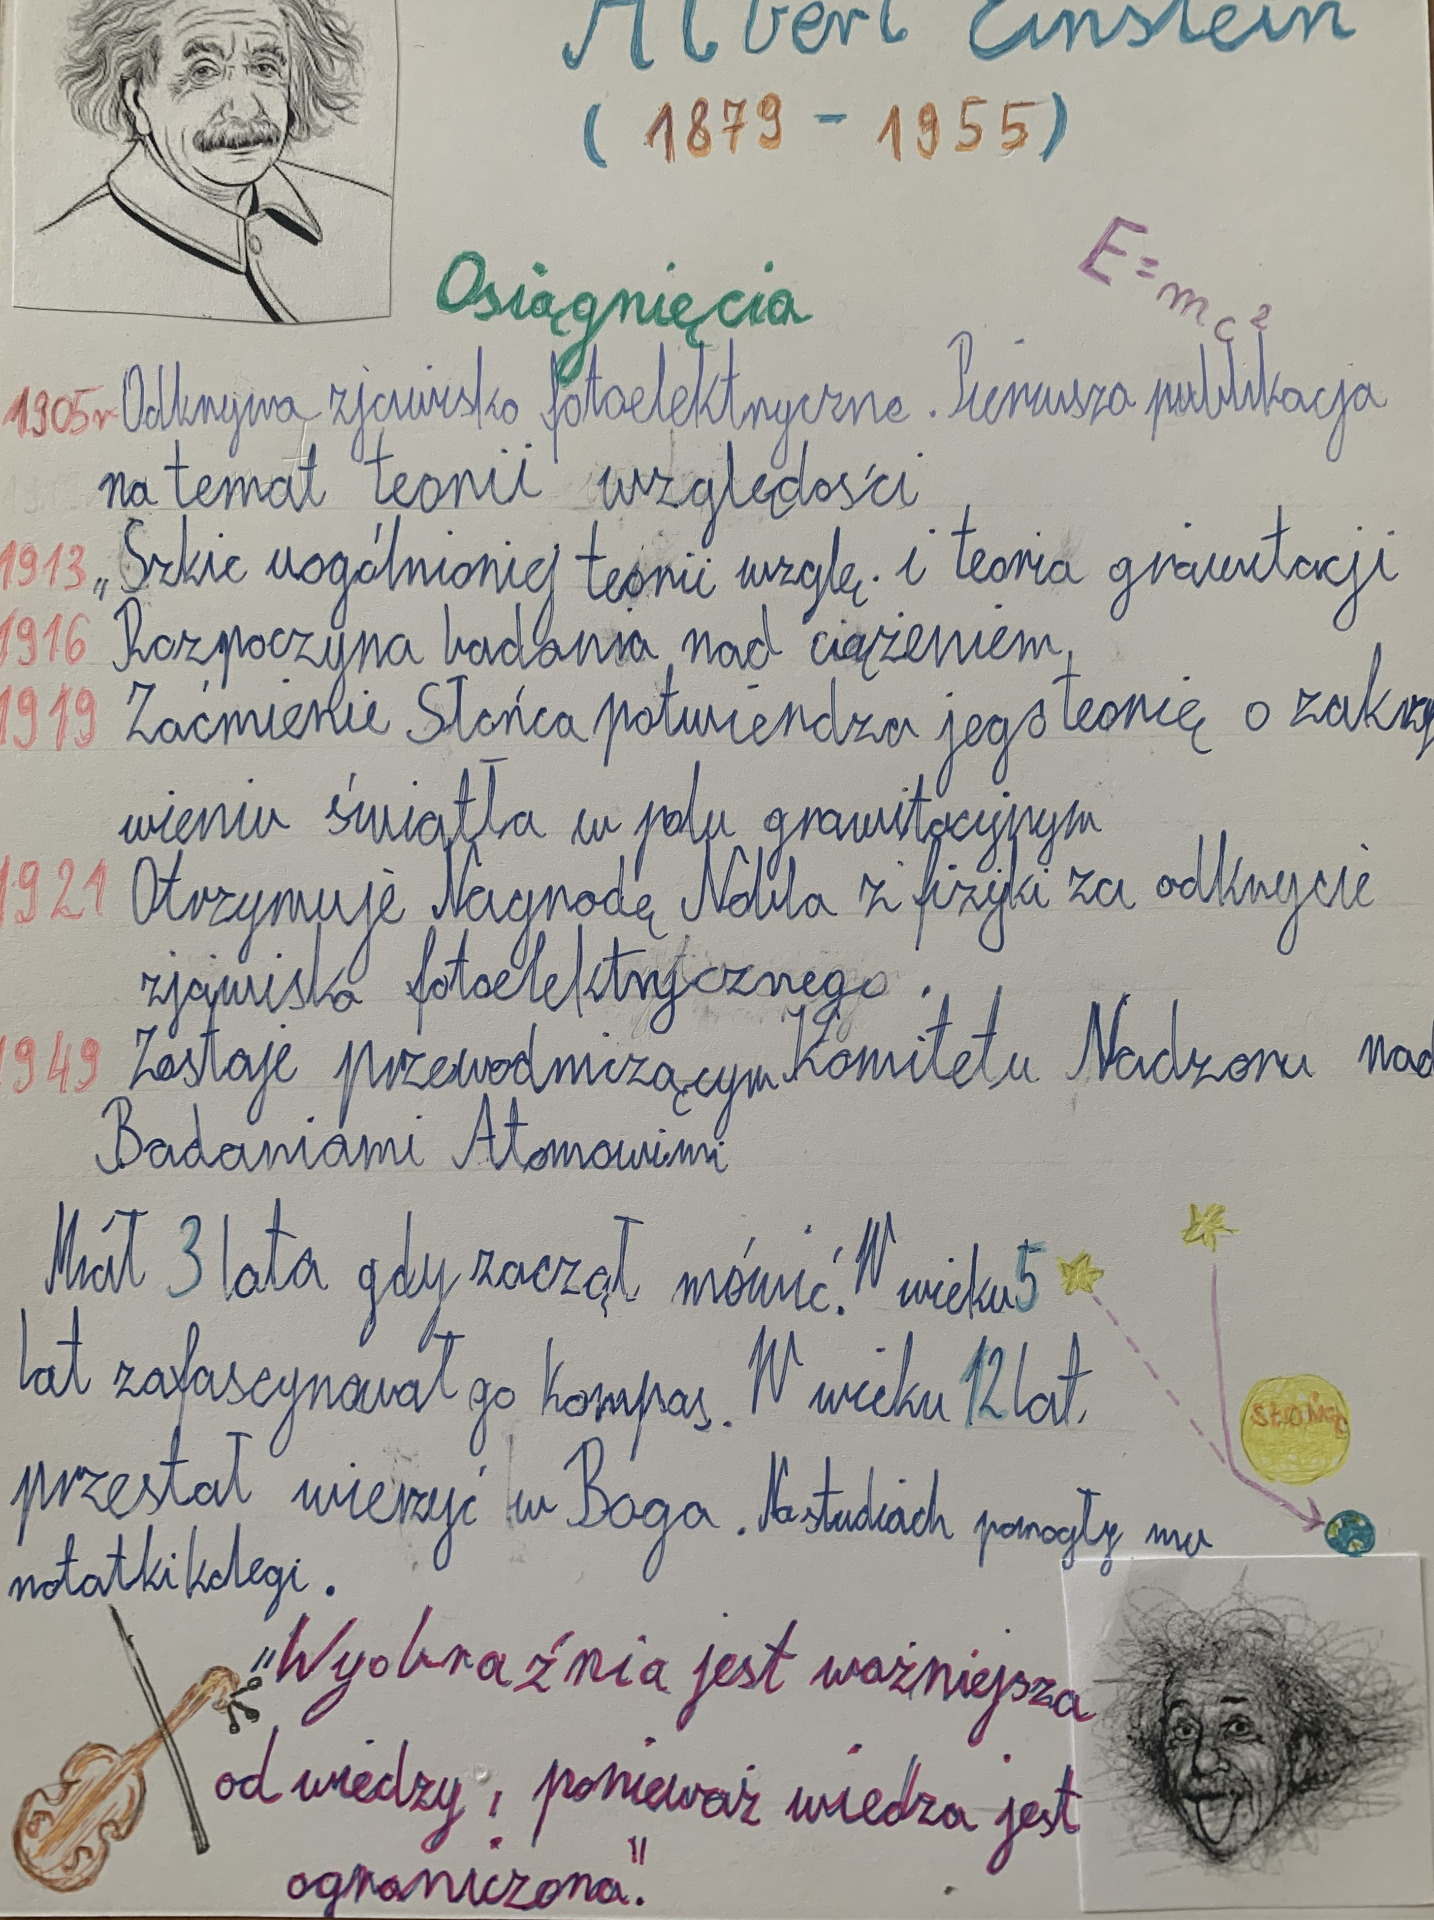 Albert Einstein
( 1879 - 1955 )
E=mc²
Osiągnięcia
1905r Odkrywa zjawisko fotoelektryczne. Pierwsza publikacja
na temat teorii względości
1913 „Szkic uogólnionej teorii wzglę. i teoria grawitacji
1916 Rozpoczyna badania nad ciążeniem,
1919 Zaćmienie Słońca potwierdza jego teorię o zakrzy
wieniu światła w polu grawitacyjnym
1921 Otrzymuje Nagrodę Nobla z fizyki za odkrycie
zjawiska fotoelektrycznego.
1949 Zostaje przewodniczącym Komitetu Nadzoru nad
Badaniami Atomowimi
Miał 3 lata gdy zaczął mówić. W wieku 5
lat zafascynował go kompas. W wieku 12 lat,
przestał wierzyć w Boga. Na studiach pomogły mu
notatki kolegi.
SŁOŃCE
"Wyobraźnia jest ważniejsza
od wiedzy, ponieważ wiedza jest
ograniczona".